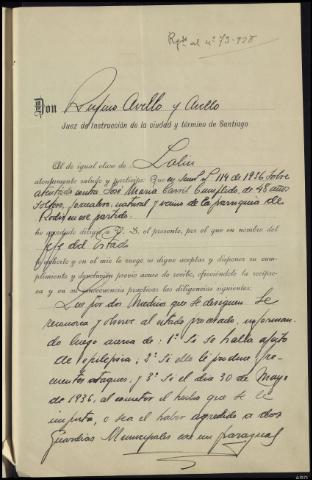 Rgdo al nº 73-938
Don Rufino Avello y Avello
Juez de Instrucción de la ciudad y término de Santiago
Al de igual clase de Lalin
atentamente saludo y participo: Que en sumº nº 114 de 1936 sobre
atentado contra José María Carril Cumplido, de 48 años
soltero, jornalero, natural y vecino de la parroquia de
Rodis en ese partido.
he acordado dirigir a V. S. el presente, por el que en nombre del
Jefe del Estado
le exhorto y en el mío le ruego se digne aceptar y disponer su cum-
plimiento y devolución previo acuse de recibo, ofreciéndole la recípro-
ca y en su consecuencia practicar las diligencias siguientes:
Que por dos Médicos que se designen se
reconozca y observe al citado procesado, informan-
do luego acerca de: 1º Si se halla afecto
de epilepsia; 2º Si ella le produce fre-
cuentes ataques; y 3º Si el día 30 de Mayo
de 1936, al cometer el hecho que se le
imputa, o sea el haber agredido a dos
Guardias Municipales con un paraguas